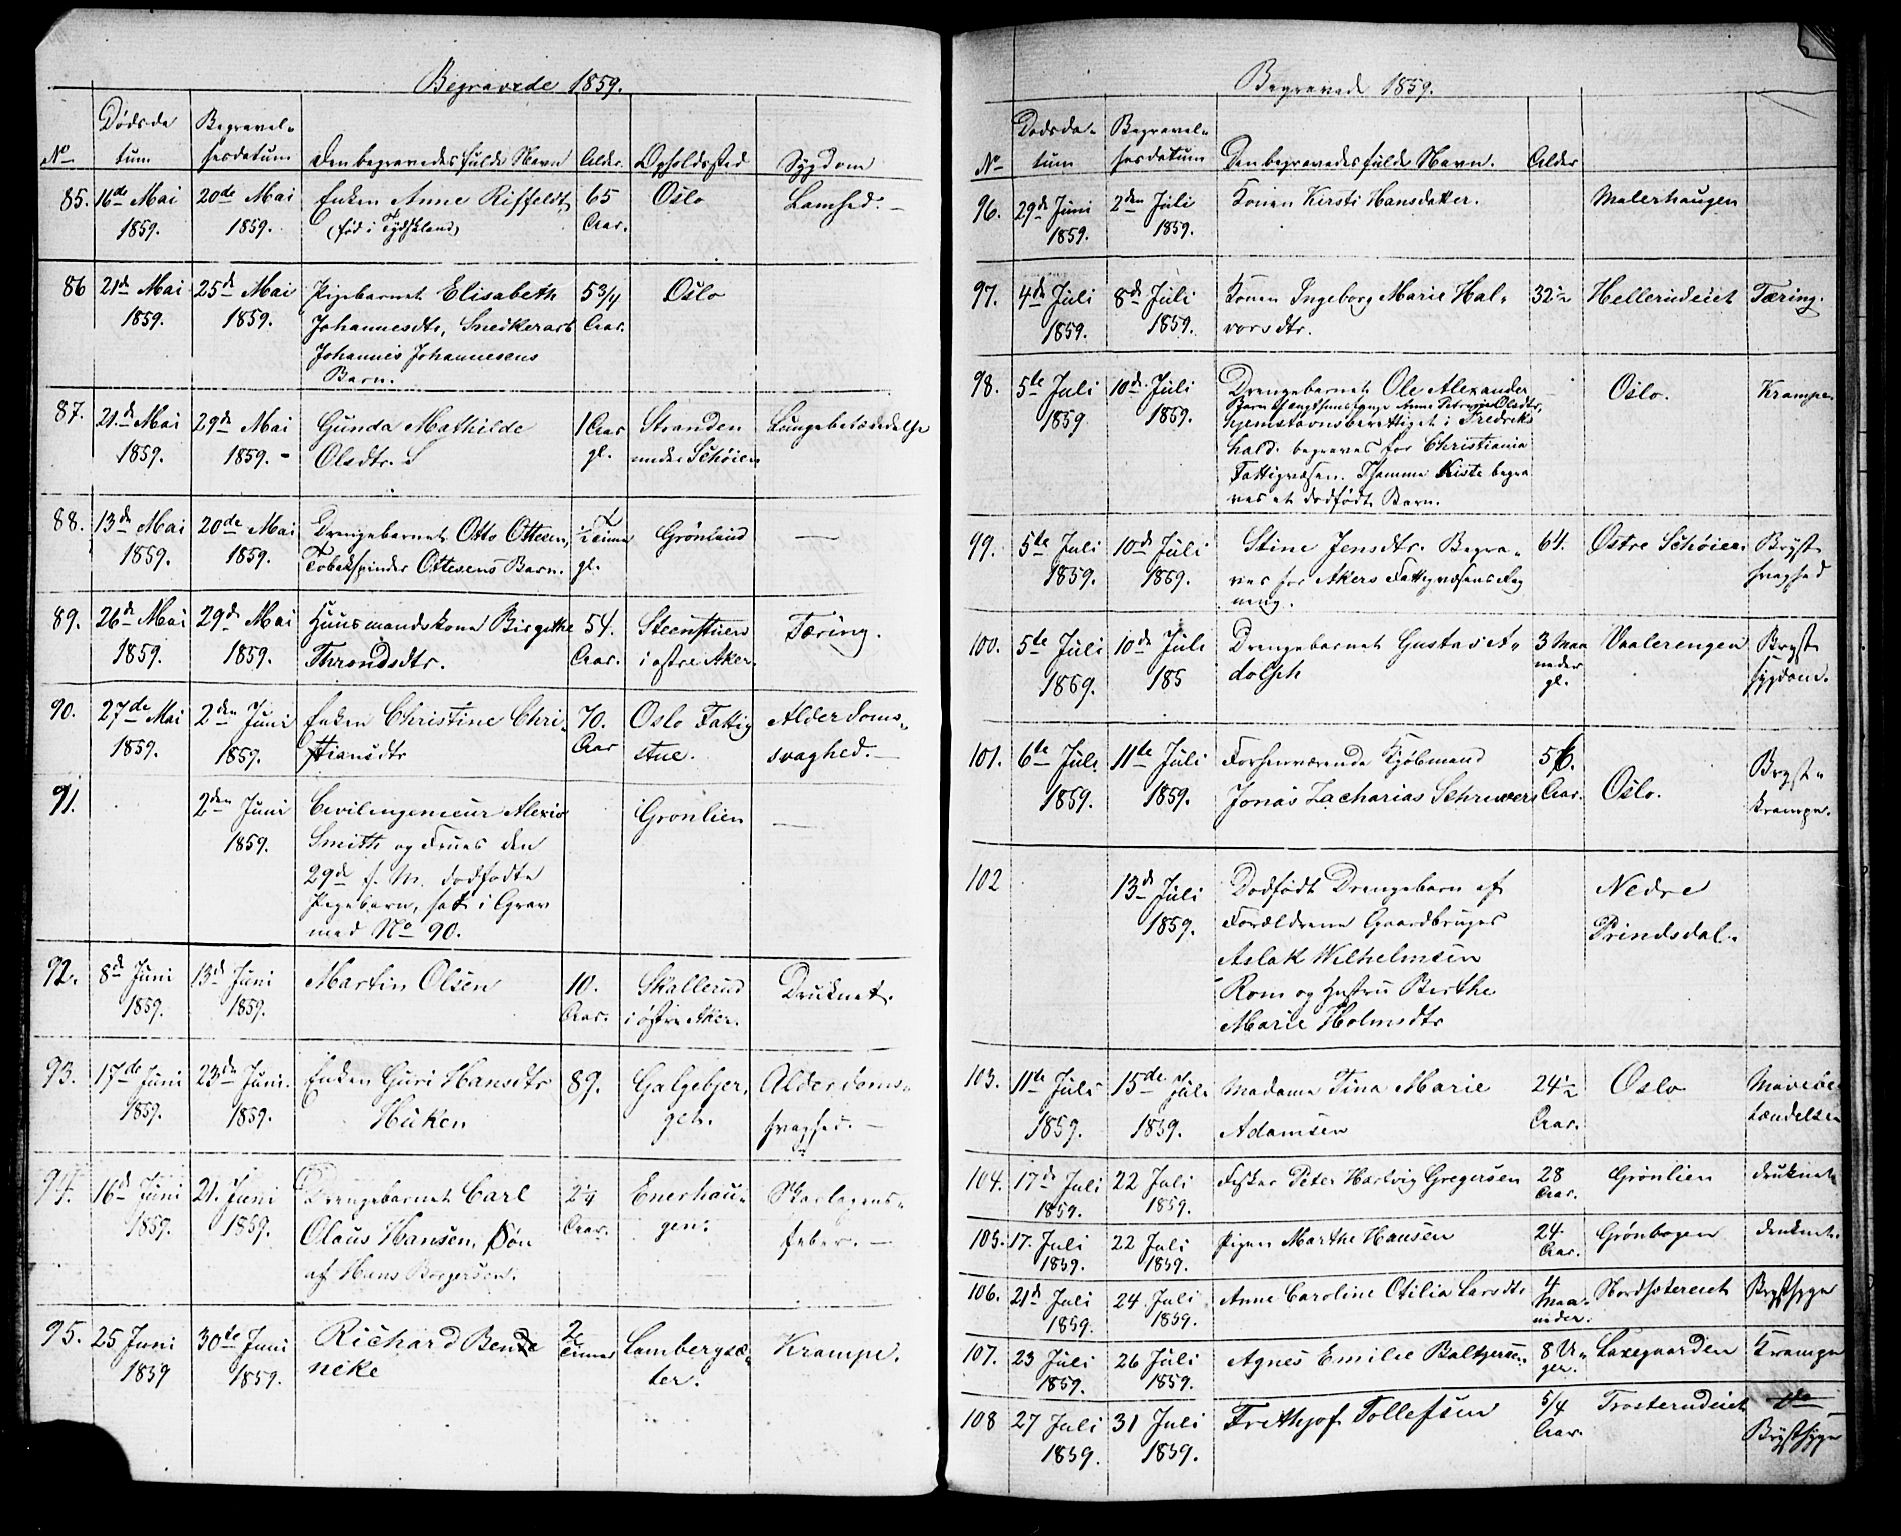 Begravede 1859.
No Dødsdatum Begravelsesdatum Den begravedes fulde Navn Alder. Opholdssted Sygdom
85. 16de Mai 1859. 20de Mai 1859. Enken Anne Riffeldt, (født i Tydskland) 65 Aar. Oslo Lamhed. –
86 21de Mai 1859. 25de Mai 1859. Pigebarnet Elisabeth
Johannesdtr, Snedkerarb
Johannes Johannesens
Barn. 5 3/4 Aar. Oslo
87. 21de Mai 1859. 29de Mai 1859. – Gunda Mathilde
Olsdtr. 1 Aar gl. Stranden under Schøien Lungebetændelse
88. 13de Mai 1859. 20de Mai 1859. Drengebarnet Otto Ottesen,
Tobakspinder Ottesens Barn. 1/2 Time gl. Grønland —
89. 26de Mai 1859. 29de Mai 1859. Huusmandskone Birgithe
Throndsdtr. 54. Aar. Steenstuen i østre Aker. Tæring.
90. 27de Mai 1859. 2den Juni 1859. Enken Christine Chri-
stiansdtr 70. Aar Oslo Fattig stue. Alderdoms-
svaghed. –
91. 2den Juni 1859. Civilingenieur Alexis
Smith og Frues den
29de f. M. dødfødte
Pigebarn, sat i Grav
med No 90. Grønlien —
92. 8de Juni 1859. 13de Juni 1859. Martin Olsen 10. Aar. Skallerud i østre Aker. Druknet.
93. 17de Juni 1859. 23de Juni. 1859. Enken Guri Hansdtr
Huken 89. Galgebjer-
get. Alderdoms-
svaghed. –
94. 16de Juni 1859. 21. Juni 1859. Drengebarnet Carl
Olaus Hansen, Søn
af Hans Borgersen. 2 1/4 Aar. Enerhau-
gen. Skarlagens-
feber. –
95. 25 Juni 1859 30te Juni 1859. Richard Bene
neke 2 Timer Lambergsæ-
ter. Krampe.
Begravede 1859.
No Dødsdatum Begravelsesdatum Den begravedes fulde Navn. Alder
96. 29de Juni 1859. 2den Juli 1859. Konen Kirsti Hansdatter. Malerhaugen
97. 4de Juli 1859. 8de Juli 1859. Konen Ingeborg Marie Hal-
vorsdtr. 32 1/2 Hellerudeiet Tæring.
98. 5te Juli 1859 10de Juli 1859. Drengebarnet Ole Alexander
Barn af Anne Petronie Olsdtr,
hjemstavnsberettiget i Fredriks
hald. begraves for Christiania
Fattigvæsen. I samme Kiste begra
ves et dødfødt Barn. Oslo. Krampe
99. 5te Juli 1859. 10de Juli 1859. Stine Jensdtr. Begra-
ves for Akers Fattigvæsens Reg
ning. 64. Østre Schøien Bryst
svaghed
100. 5te Juli 1859. 10de Juli 185 Drengebarnet Gustav A-
dolph 3 Maa
neder
gl. Vaalerengen Bryst
sygdom.
101. 6te Juli 1859. 11te Juli 1859. Forhenværende Kjøbmand
Jonas Zacharias Schriwers 56. Aar. Oslo. Bryst-
krampe.
102 13de Juli 1859. Dødfødt Drengebarn af
Forældrene Gaardbruger
Aslak Wilhelmsen
Rom og Hustru Berthe
Marie Holmsdtr Nedre
Prindsdal.
103. 11te Juli 1859. 15de Juli 1859. Madame Tina Marie
Adamsen 24 1/2 Aar. Oslo Mavebe
tændelse
104. 17de Juli 1859. 22 Juli 1859. Fisker Peter Hartvig Gregersen 28 Aar. Grønlien druknet
105. 17. Juli 1859. 22 Juli 1859. Pigen Marthe Hansen 24. Aar. Grønbogen druknet.
106. 21de Juli 1859. 24. Juli 1859. Anne Caroline Otilia Larsdtr 4 Maa-
neder. Nordstereiet Brystsyge
107. 23 Juli 1859. 26 Juli 1859. Agnes Emilie Baltzersen. 8 U-
ger. Laxegaarden Krampe
108 27 Juli 1859. 31 Juli 1859. Frithjof Tollefsen 5/4 Aar. Trosterudeiet do
Brystsyge